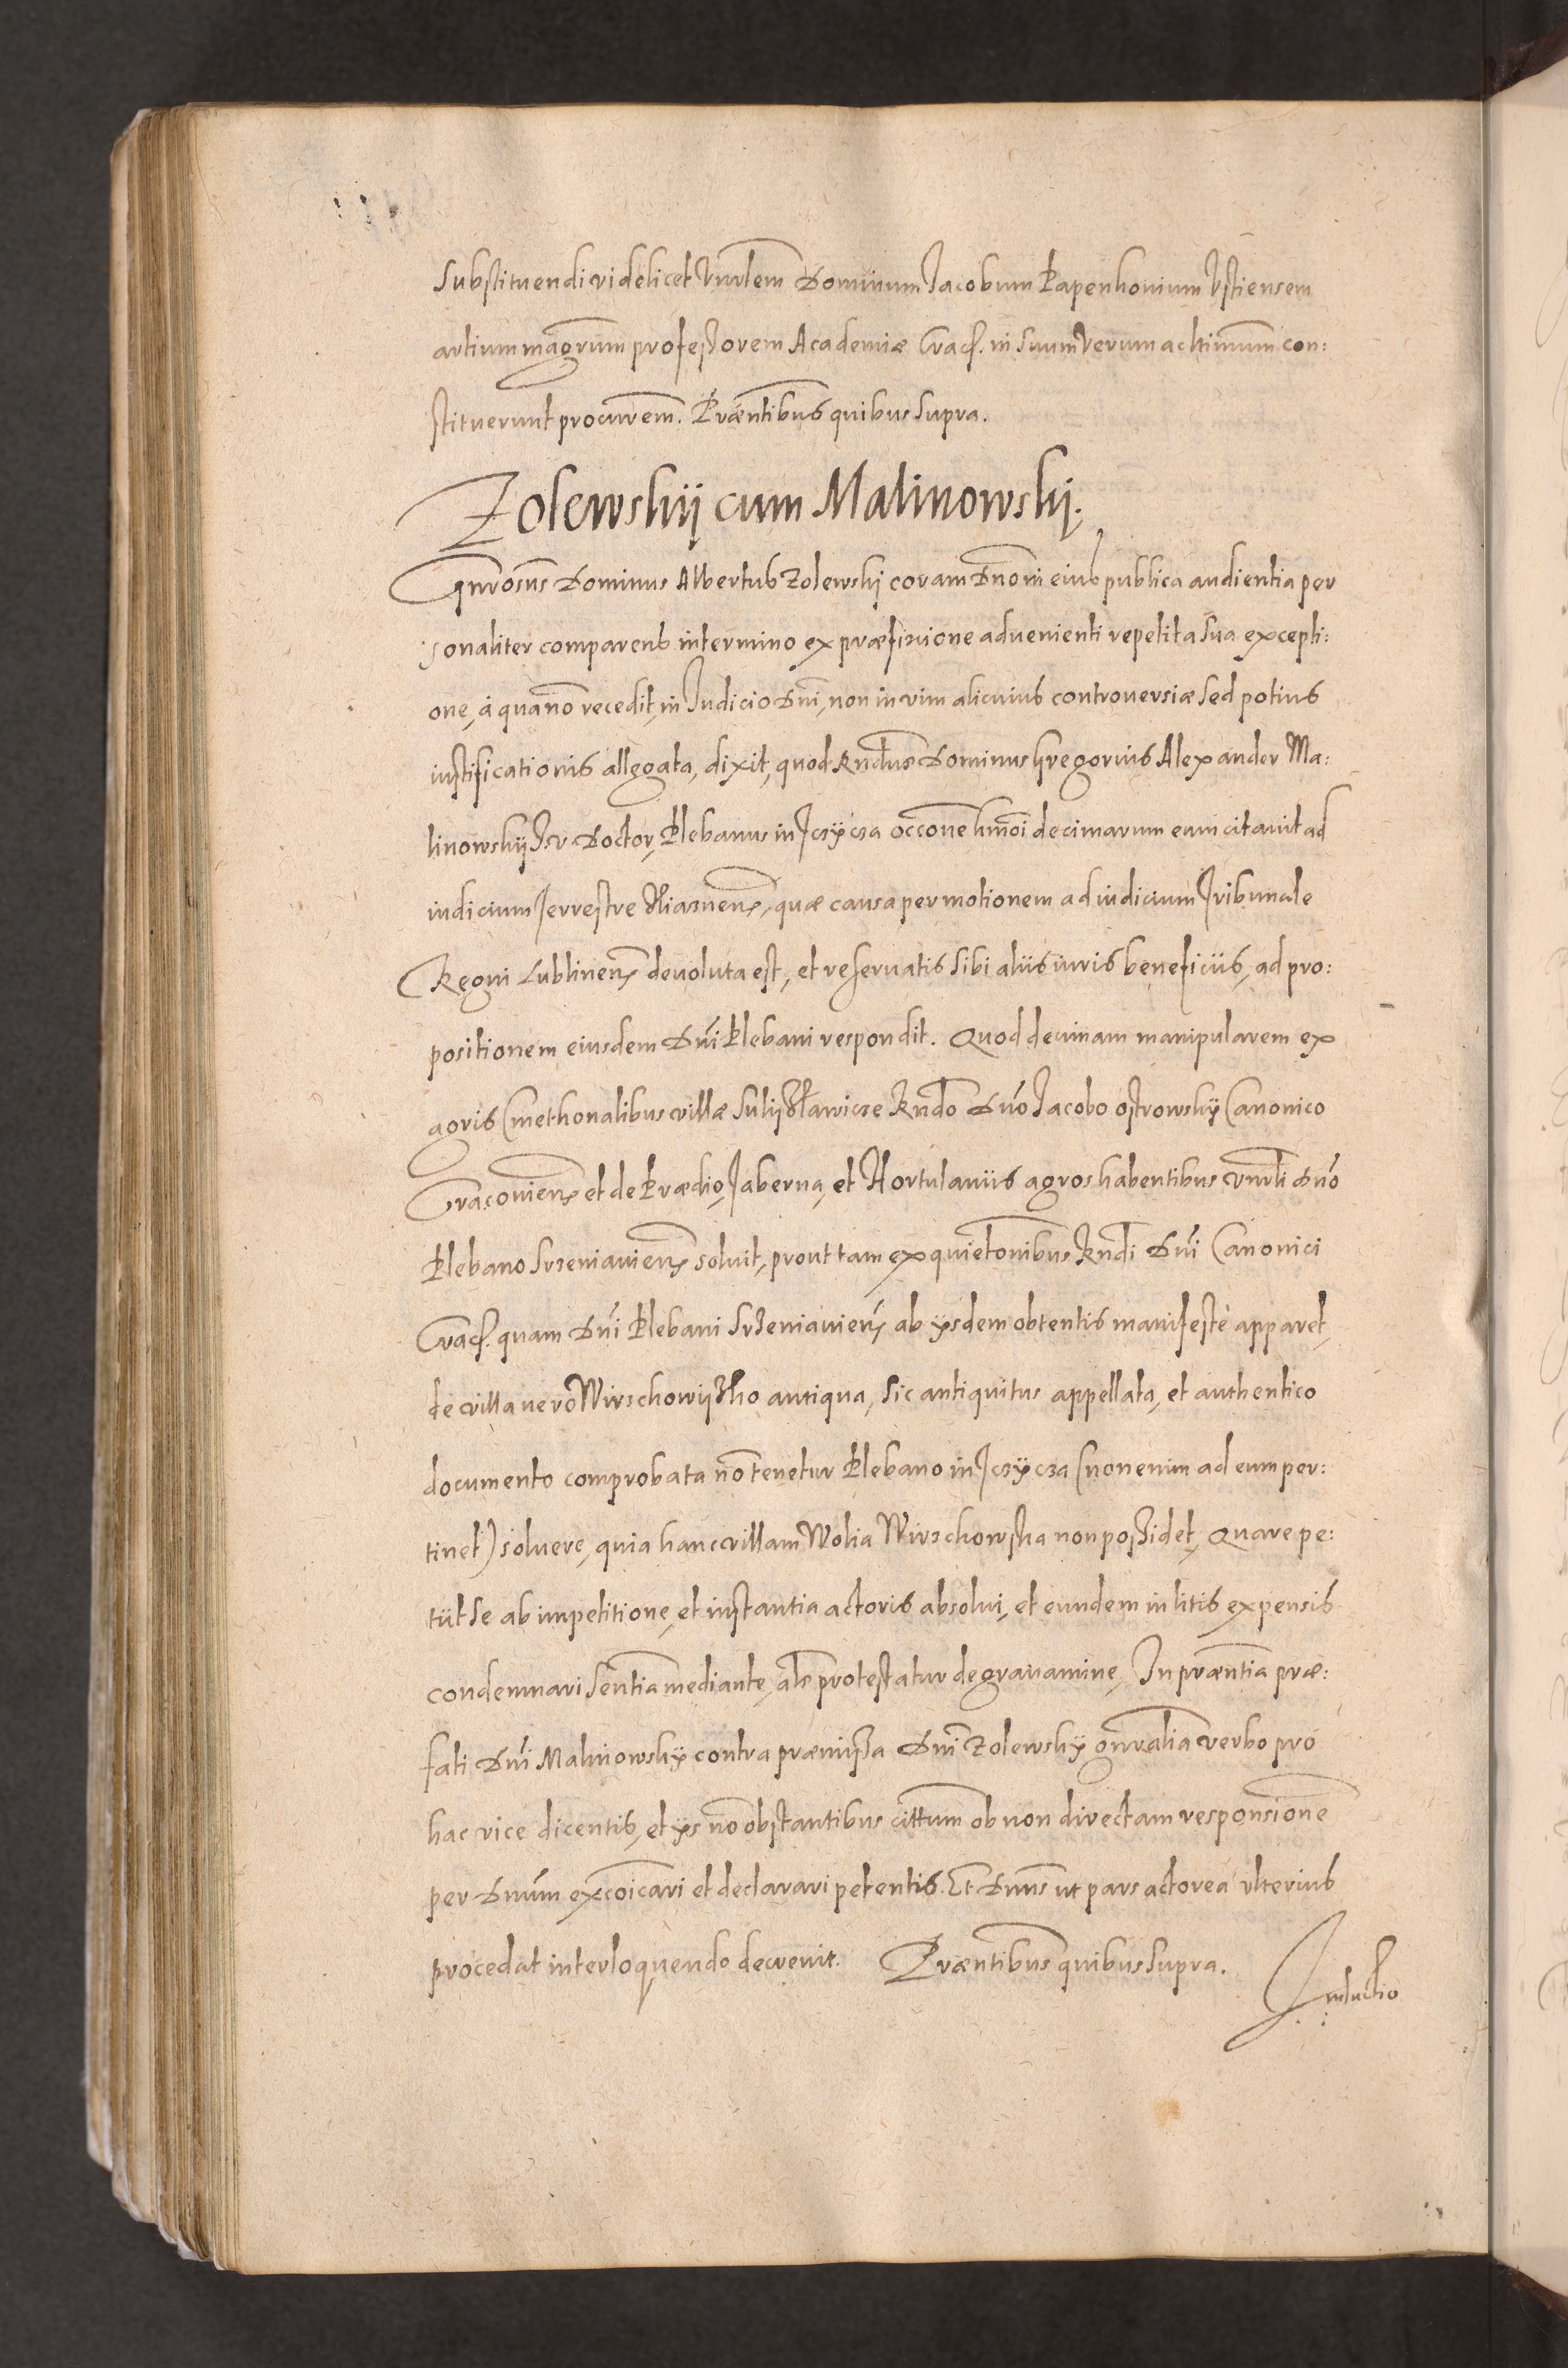 Substituendi videlicet Vnrlem Dominum Jacobum Papenhonium Vstiensem
artium magrum professorem Academiæ Cracs. in suum verum ac ltimum con:
stituerunt procurem. Præntibus quibus supra.
Zolewskij cum Malinowskj.
Gnrosus Dominus Albertus Zolewskj coram Dno in eius publica audientia per
sonaliter comparens in termino ex præfixione aduenienti repetita sua excepti:
one, à qua no recedit, in Judicio Dni, non in vim alicuius controuersiæ sed potius
iustificationis allegata, dixit, quod Rndus Dominus Gregorius Alexander Ma:
linowskij Jur Doctor, Plebanus in Tczÿcza occone hmoi decimarum eum citauit ad
iudicium Terrestre Xiaznens, quæ causa per motionem ad iudicium Tribunale
Regni Lublinens deuoluta est, et reseruatis sibi aliis iuris beneficiis, ad pro:
positionem eiusdem Dni Plebani respondit. Quod decimam manipularem ex
agris Cmethonalibus villæ Sulijsławicze Rndo Dno Jacobo Ostrowskÿ Canonico
Cracouiens et de Prædio, Taberna, et Hortulaniis agros habentibus vnrli Dno
Plebano Srzeniauiens soluit, prout tam ex quietonibus Rndi Dni Canonici
Cracs. quam Dni Plebani Srzeniauiens ab ÿsdem obtentis manifestè apparet,
de villa uerò Wirzchowijsko antiqua, sic antiquitus appellata, et authentico
documento comprobata no tenetur Plebano in Tczÿcza (non enim ad eum per:
tinet) soluere, quia hanc villam Wolia Wirzchowska non possidet, Quare pe:
tiit se ab impetitione, et instantia actoris absolui, et eundem in litis expensis
condemnari sentia mediante, als protestatur de grauamine, In præntia præ:
fati Dni Malinowskÿ contra præmissa Dni Zolewskÿ gnralia verbo pro
hac vice dicentis, et ÿs no obstantibus cittum ob non directam responsione
per Dnum excoicari et declarari petentis. Et Dnus ut pars actorea vlterius
procedat interloquendo decreuit. Præntibus quibus supra.
Inductio